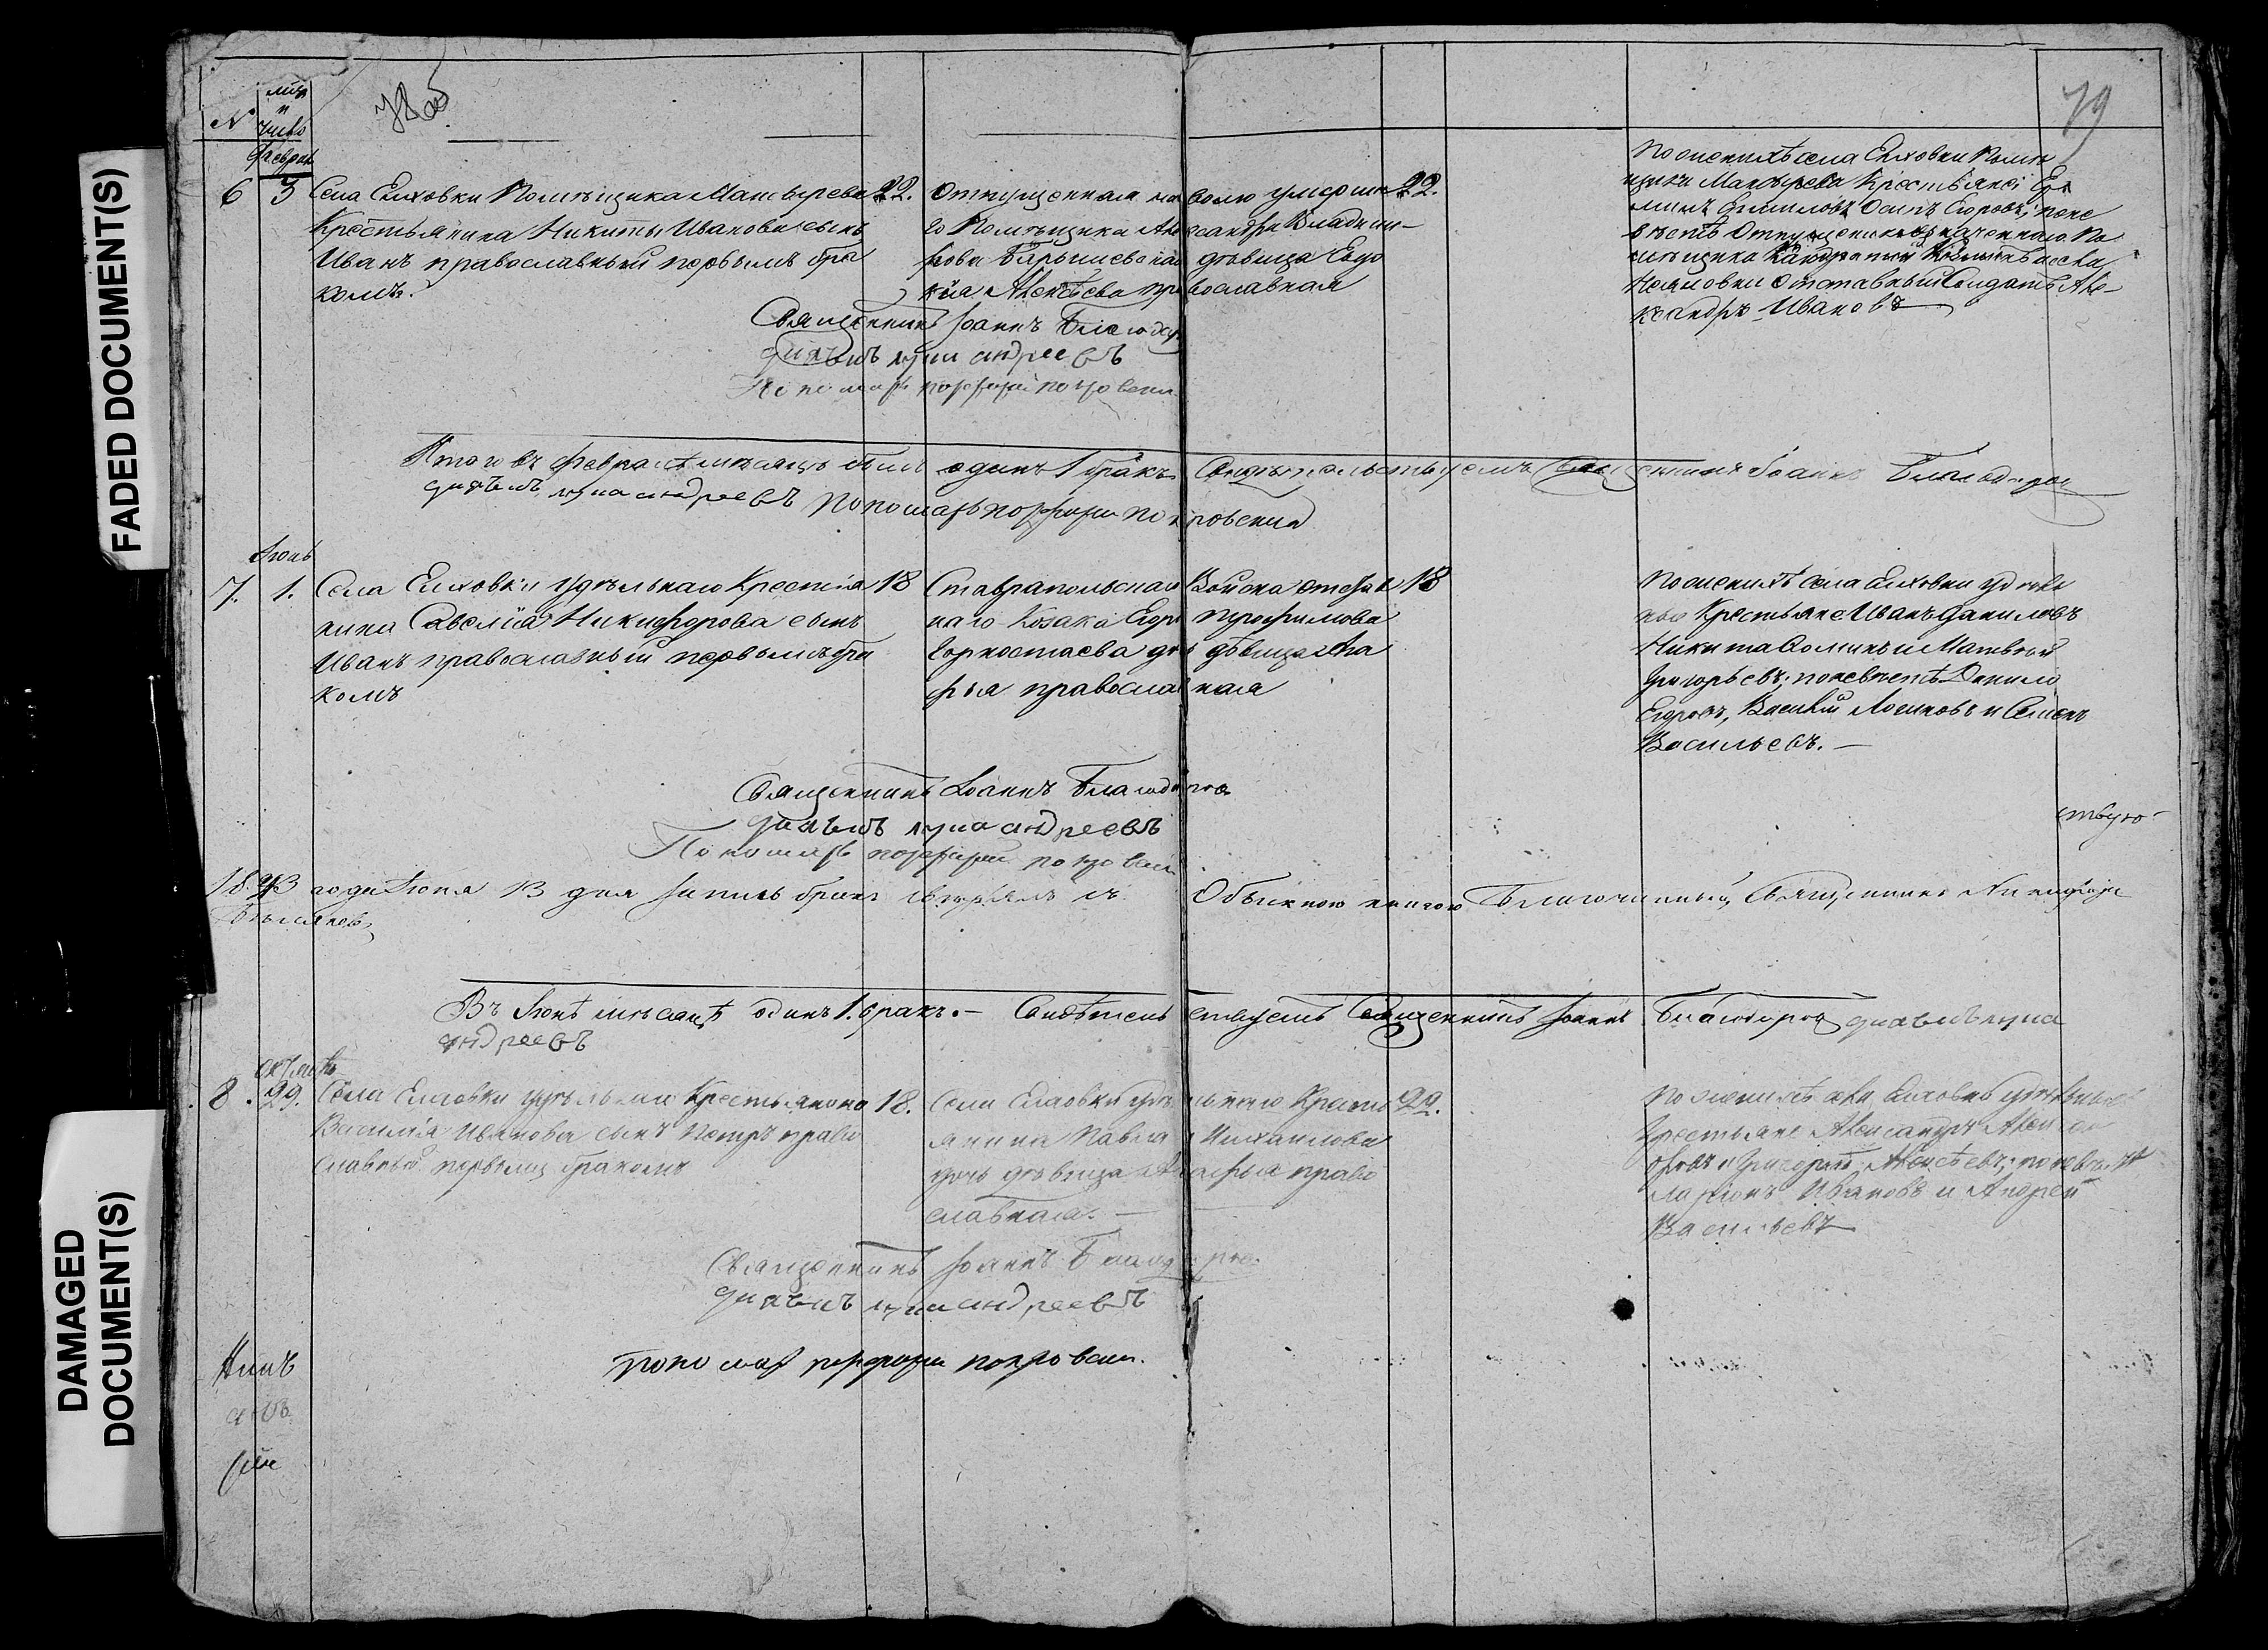 FADED DOCUMENT(S)
DAMAGED
DOCUMENT(S)
79
№
и
число
Феврал
6 3 Села Елховки Помѣщика Мансырева 22.
Крестьянина Никиты Иванова сынъ
Иванъ православный первымъ бра
комъ.
Отпущенная на волю умерша 22.
го Помѣщика Александра Владими
рова дѣвица Евдо
кия Алексѣева православная
По женихѣ села Елховки Помѣ
щика Мансырева Крестьяне Ер
Осипъ Егоровъ; по не
вѣстѣ
отставный Солдатъ Але
ксандръ Ивановъ
Священникъ Іоаннъ Благодаров
Дьячекъ Лука андреевъ
Пономарь порфирий покровский
Итого въ Февралѣ мѣсяцѣ одинъ 1 бракъ Священникъ Іоаннъ Благодаров
дьячекъ лука андреевъ пономарь порфирий покровский
Іюнь
7. 1. Села Елховки Удѣльнаго Крестья 18
нина Савелія Никифорова сынъ
Иванъ православный первымъ бра
комъ
Ставрапольскаго Войска отстав 18
наго Козака Егора Трофимова
Горностаева дѣвица Ага
фья православная
По женихѣ села Елховки удѣль
ные Крестьяне Иванъ Даниловъ
Никита Фоминъ и Матвей
Григорьевъ; по невѣстѣ Данило
Егоровъ, Василий Логиновъ и Семенъ
Васильевъ.
Священникъ Іоаннъ Благодаров
дьячекъ лука андреевъ
Пономарь порфирий покровский
ствую
года Іюня 13 дня запись брака съ Обыскною книгою Благочинный, Священникъ
Въ Іюнѣ мѣсяцѣ одинъ 1. бракъ. Свидѣтельствуемъ Священникъ Іоаннъ Благодаров дьячекъ лука
андреевъ
октябрь
8. 29. Села Елховки удѣльнаго Крестьянина 18.
Василія Иванова сынъ Петръ право
славный первымъ бракомъ
Села Елховки удѣльнаго Кресть 22.
янина Павла Михаилова
дочь дѣвица Агафья право
славная.
По женихѣ села Елховки удѣльные
Крестьяне Александръ
и Григорий Алексѣевъ; по невѣстѣ
Ларіонъ Ивановъ и Андрей
Васильевъ
Священникъ Іоаннъ Благодаров
дьячекъ лука андреевъ
пономарь порфирий покровский